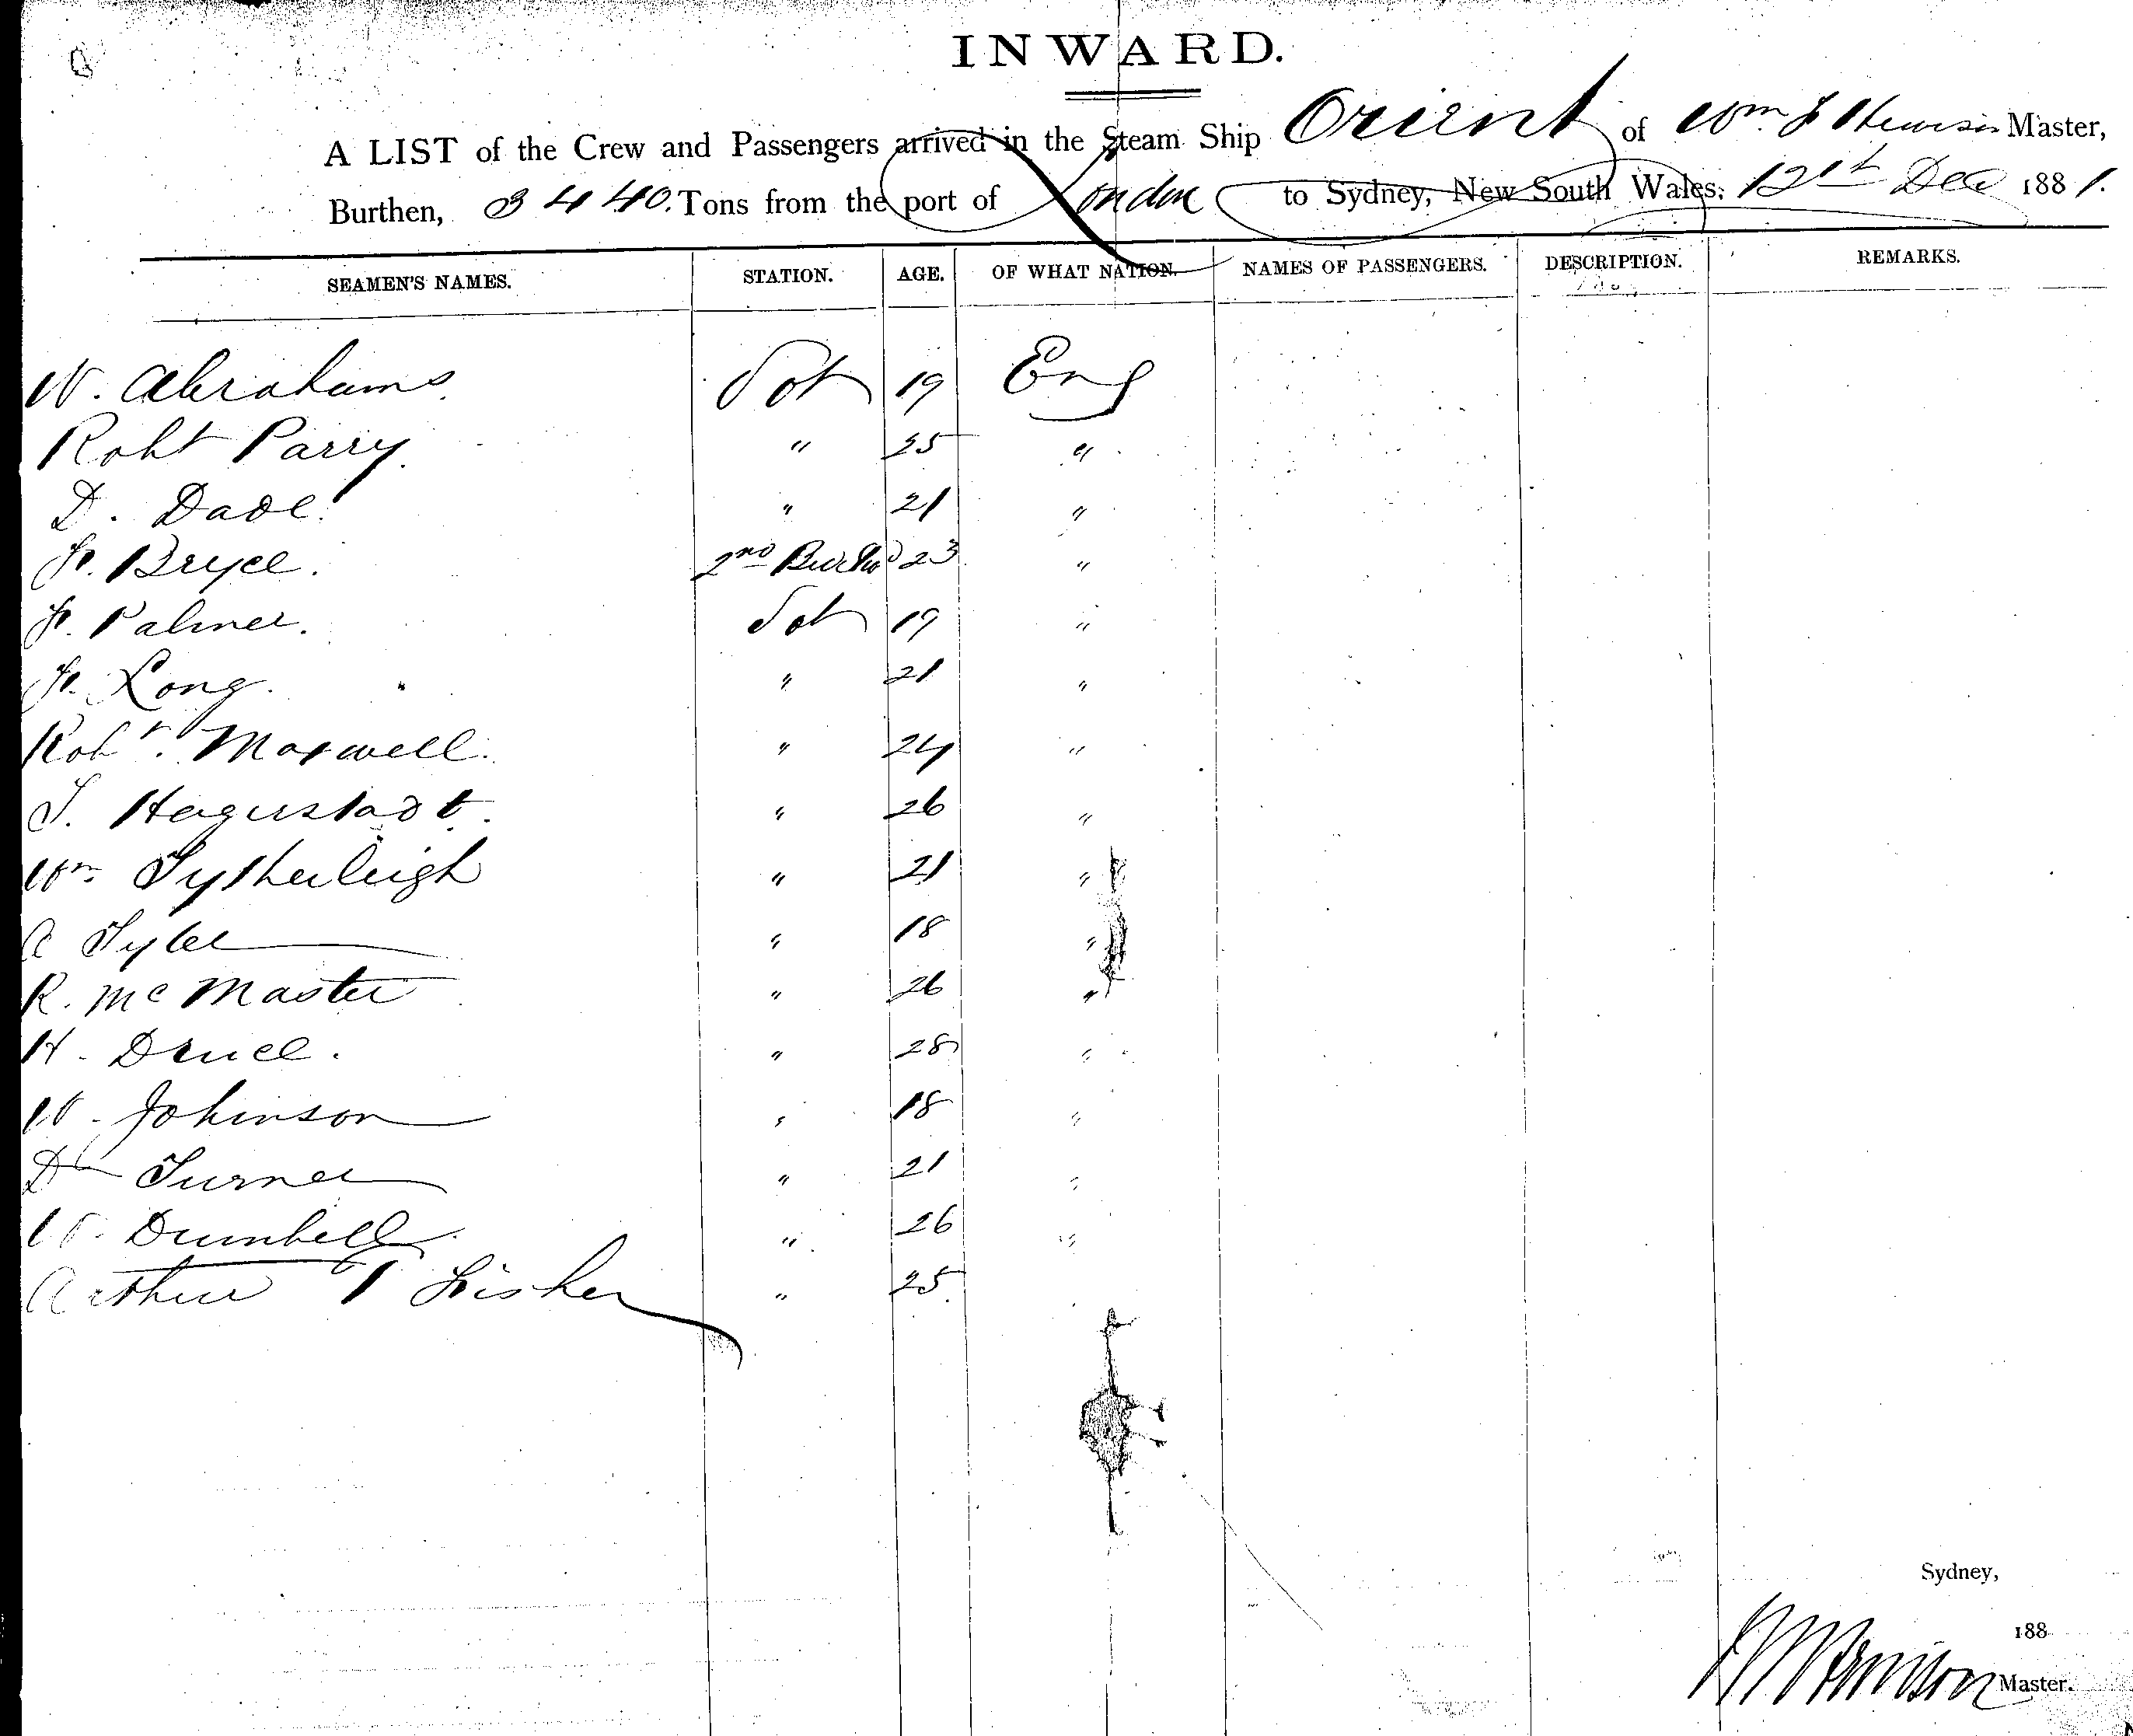 INWARD.
A LIST of the Crew and Passengers arrived in the Steam Ship Orient of Wm J Master,
Burthen, 3440. Tons from the port of London to Sydney, New South Wales: 12st Dec 1881.
SEAMEN'S NAMES. STATION. AGE. OF WHAT NATION. NAMES OF PASSENGERS. DESCRIPTION. REMARKS.
W. Abrahams. 19 Eng
Robt Parry. " 25 "
D. Dade. " 21 "
Jr. Bryce. 2nd 23 "
Jr. Palmer. 19 "
Jr. Long. " 21 "
Robt. Maxwell. " 24 "
T. Hagerstadt. " 26 "
Wm Tytherleigh " 21 "
A Tyler " 18 "
R. McMaster " 26 "
H. Druce. " 28 "
W. Johinson " 18 "
Turner " 21 "
W. Dumbell " 26 "
Arthur T Fisher " 25
Sydney,
188
Master.